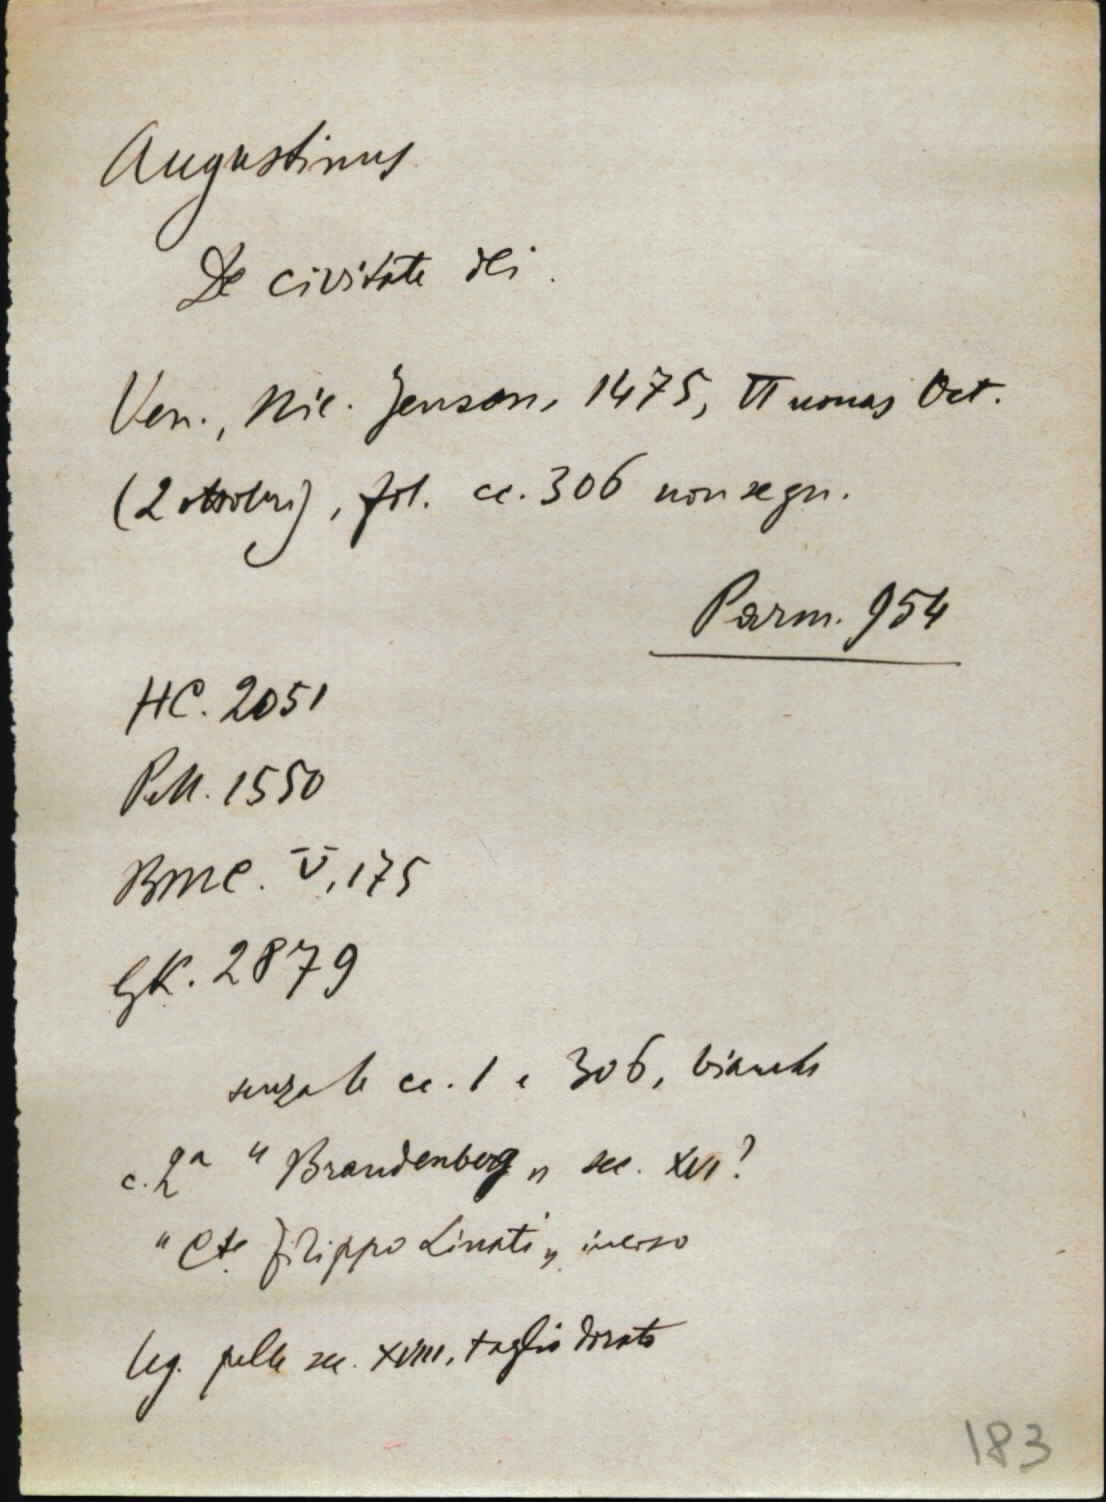 Augustinus
De civitate dei.
Ven., Nic. Jenson, 1475, VI nonas Oct.
(2 ottobre), fol. cc. 306 non segn.
Parm. 954
HC. 2051
Pell. 1550
BMC. V, 175
GK. 2879
senza le cc. 1 e 306, bianche
c. 2a "Brandenberg" sec. XVI?
"Cte Filippo Linati" inciso
leg. pelle sec. XVIII, taglio dorato
183